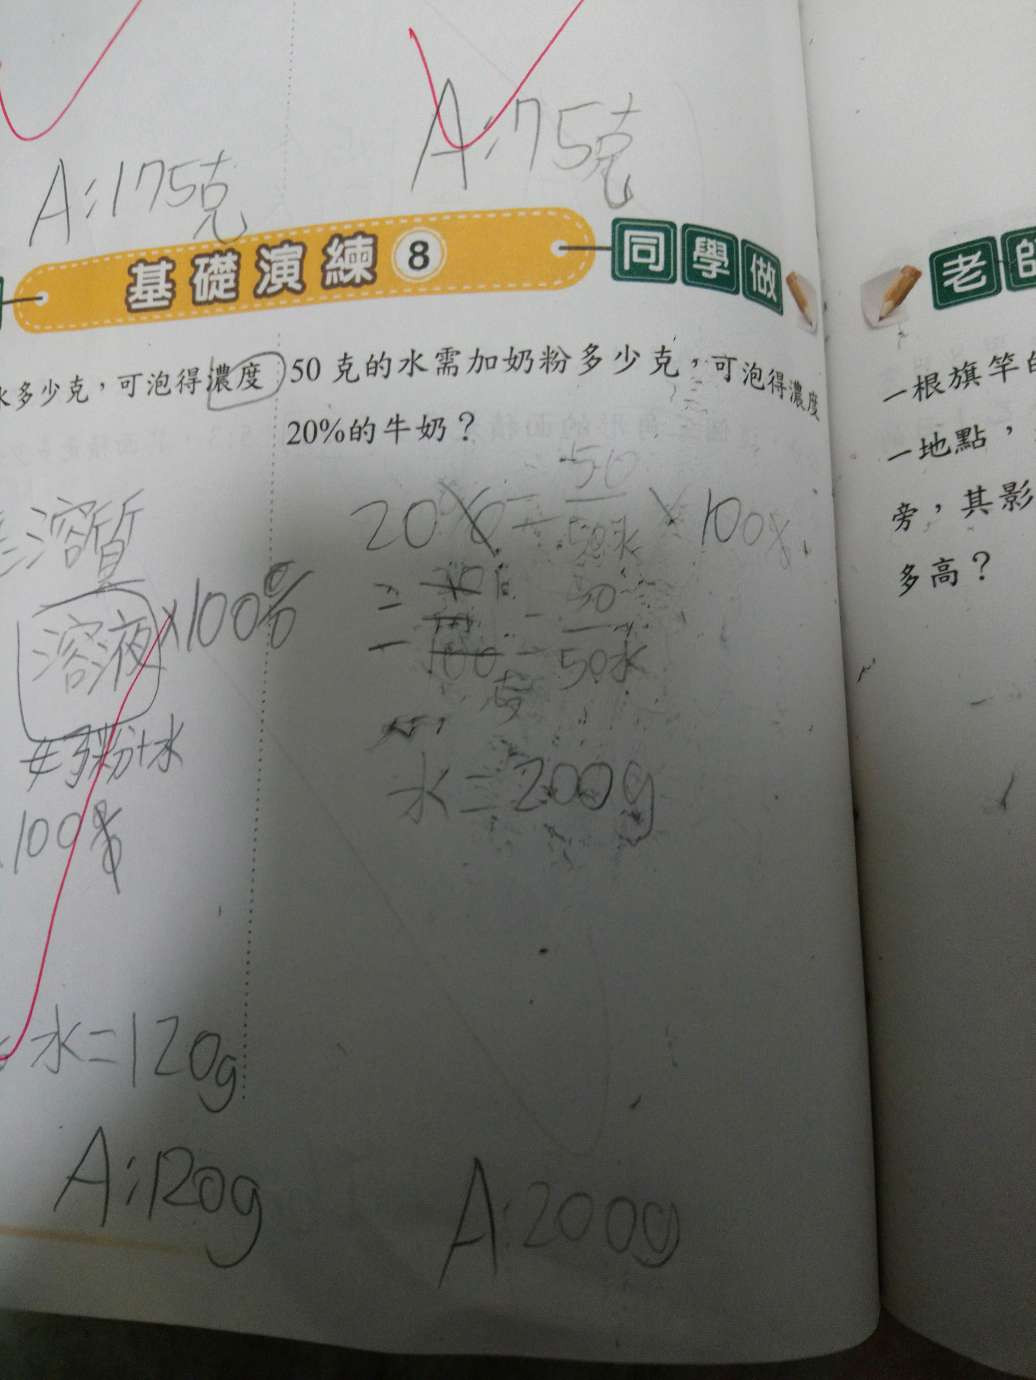 A:175克
A:75克
基礎演練8
同學做
老師
水多少克，可泡得濃度
50克的水需加奶粉多少克，可泡得濃度
20%的牛奶？
=溶質
溶液 ×100%
奶粉+水
100%
水=120g
A:120g
20%=50
50水 ×100%
50
100
50水
水=200g
A:200g
一根旗竿的
一地點，
旁，其影
多高？